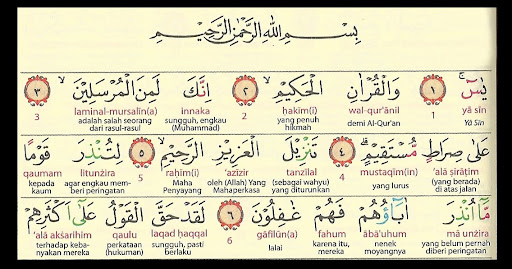 بِسْمِ اللهِ الرَّحْمٰنِ الرَّحِيْمِ
يٰسۤ ۚ ١ وَالْقُرْاٰنِ الْحَكِيْمِ ۙ ٢ اِنَّكَ لَمِنَ الْمُرْسَلِيْنَ ۙ ٣
yā sīn
1
wal-qur'ānil
ḥakīm(i)
2
innaka
laminal-mursalīn(a)
3
Yā Sīn
demi Al-Qur'an
yang penuh
hikmah
sungguh, engkau
(Muhammad)
adalah salah seorang
dari rasul-rasul
عَلٰى صِرَاطٍ مُّسْتَقِيْمٍ ۗ ٤ تَنْزِيْلَ الْعَزِيْزِ الرَّحِيْمِ ۙ ٥ لِتُنْذِرَ قَوْمًا
'alā ṣirāṭim
mustaqīm(in)
4
tanzīlal
'azīzir
raḥīm(i)
5
litunżira
qaumam
(yang berada)
di atas jalan
yang lurus
(sebagai wahyu)
yang diturunkan
oleh (Allah) Yang
Mahaperkasa
Maha
Penyayang
agar engkau mem-
beri peringatan
kepada
kaum
مَّآ اُنْذِرَ اٰبَاۤؤُهُمْ فَهُمْ غٰفِلُوْنَ ٦ لَقَدْ حَقَّ الْقَوْلُ عَلٰٓى اَكْثَرِهِمْ
mā unżira
ābā'uhum
fahum
gāfilūn(a)
6
laqad ḥaqqal
qaulu
'alā akṡarihim
yang belum pernah
diberi peringatan
nenek
moyangnya
karena itu,
mereka
lalai
sungguh, pasti
berlaku
perkataan
(hukuman)
terhadap keba-
nyakan mereka